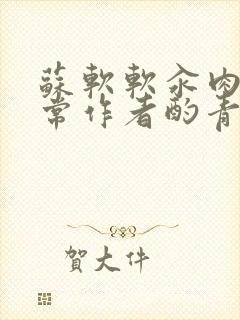 蘇軟軟汆肉
常作者酌青
賀大件